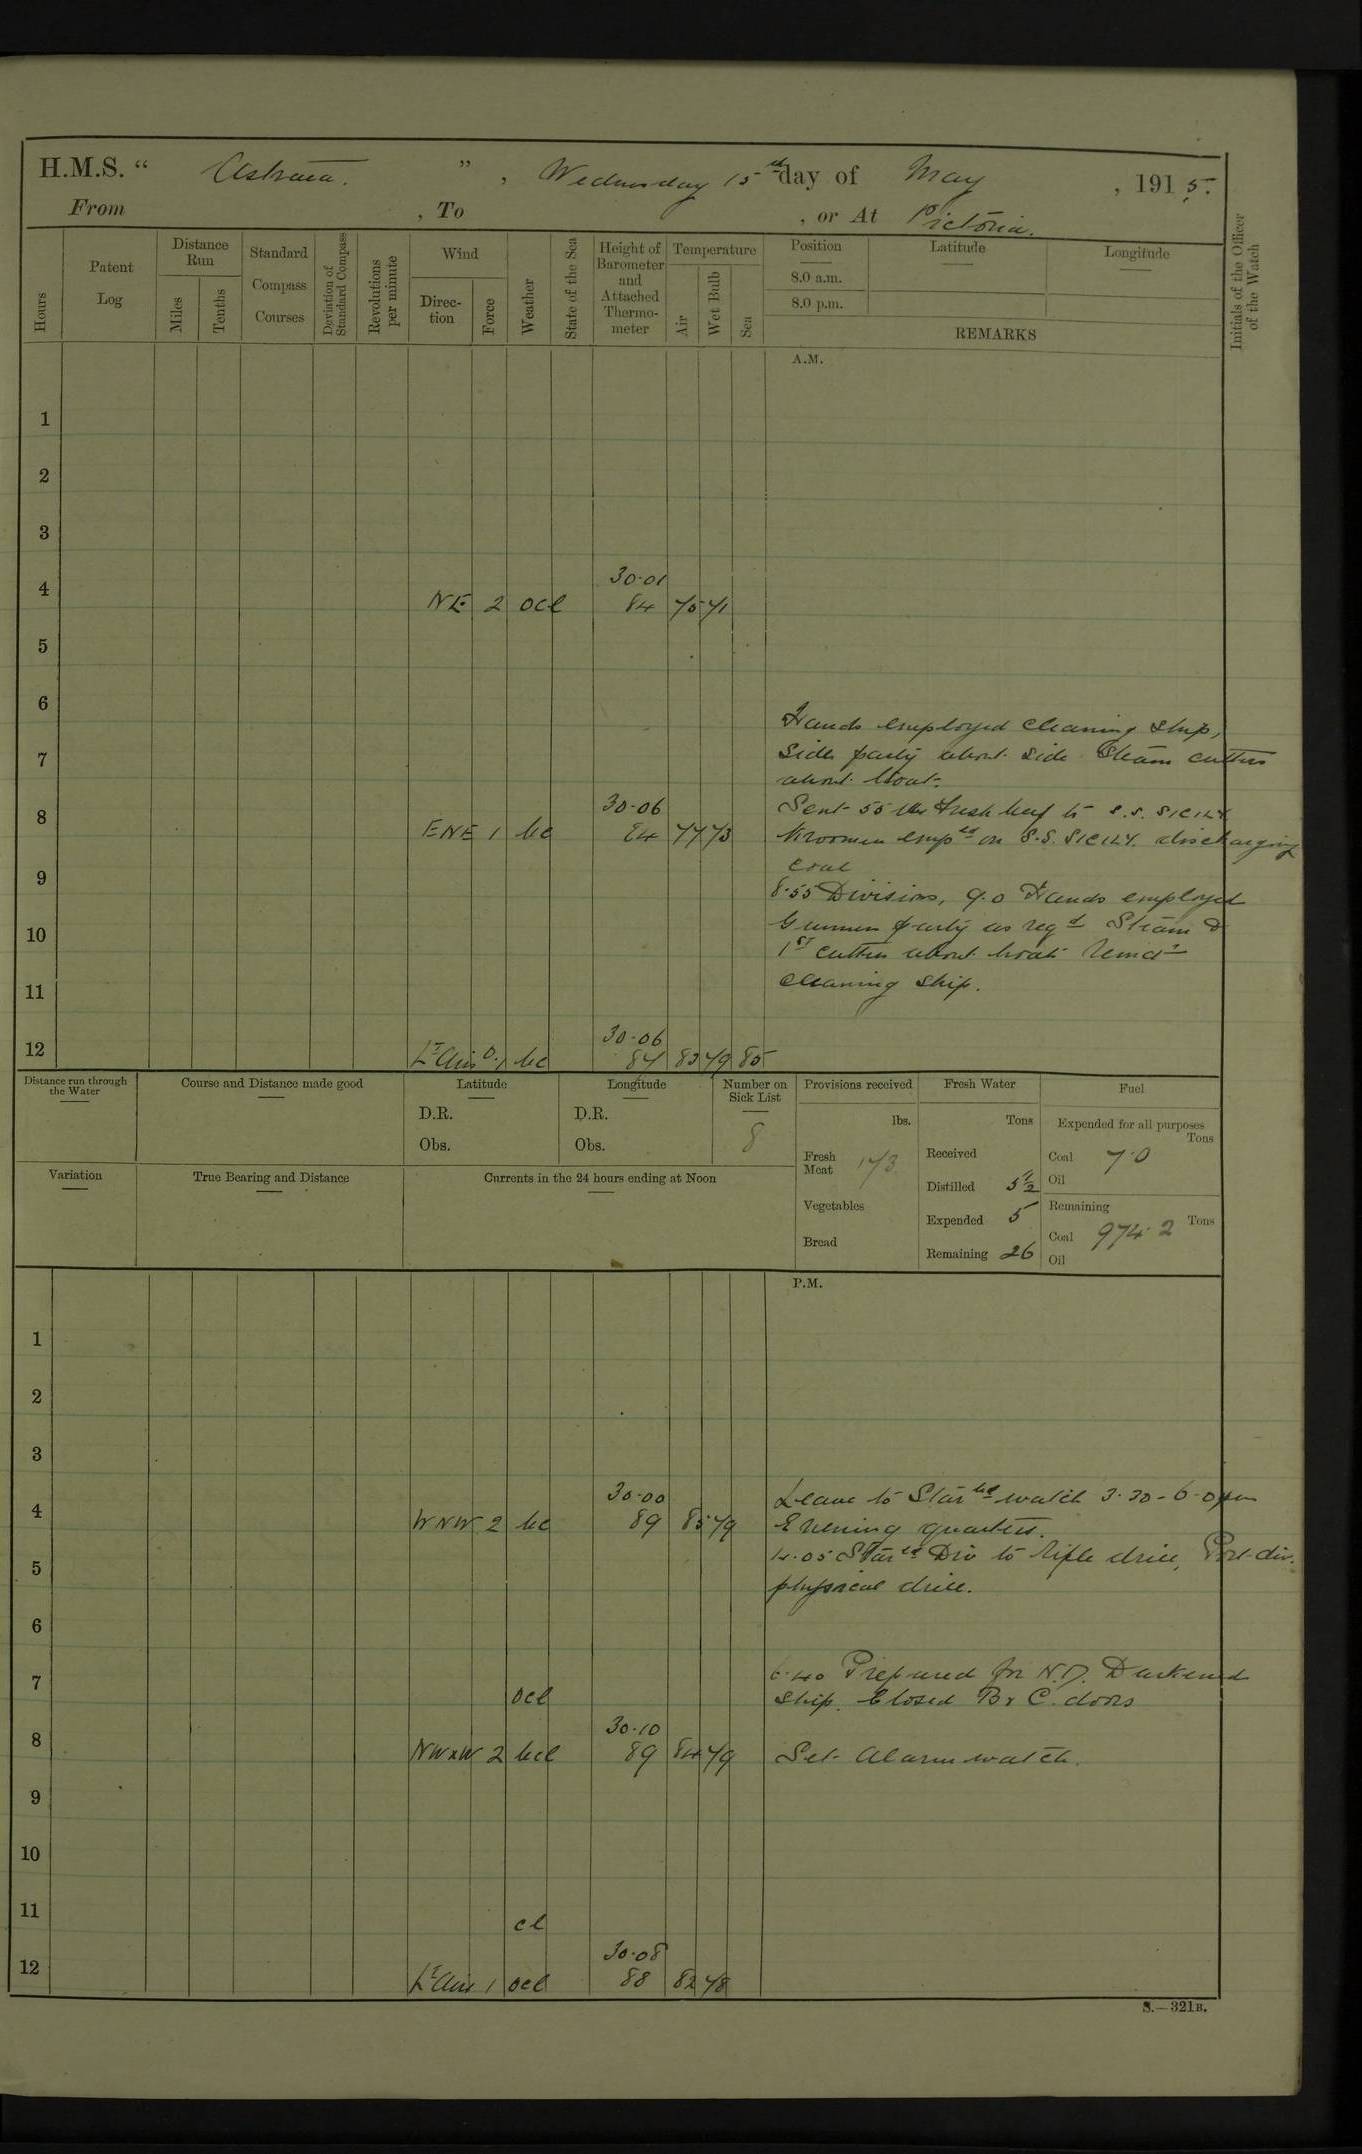 H.M.S. “ Astraea. ” , Wednesday 15th day of May , 1915.
From , To , or At Victoria.
Hours
Patent Log
Distance Run
Miles
Tenths
Standard Compass Courses
Deviation of Standard Compass
Revolutions per minute
Wind
Direction
Force
Weather
State of the Sea
Height of Barometer and Attached Thermometer
Temperature
Air
Wet Bulb
Sea
Position
8.0 a.m.
8.0 p.m.
Latitude
Longitude
REMARKS
Initials of the Officer of the Watch
A.M.
1
2
3
30.01
4 NE 2 ocl 84 75 71
5
6
Hands employed cleaning ship,
7 side party about side Steam cutters
about boat.
8 30.06 Sent 55 lbs fresh beef to S.S. SICILY
ENE 1 bc 84 77 73 Kroomen empd on S.S. SICILY. discharging
coal
9 8.55 Divisions, 9.0 Hands employed
10 Gunners party as reqd Steam &
1st cutters about boats Remdr
11 cleaning ship.
30.06
12 Lt Airs 0.1 bc 84 83 79 85
Distance run through the Water
Course and Distance made good
Latitude
D.R.
Obs.
Longitude
D.R.
Obs.
Number on Sick List
8
Provisions received
lbs.
Fresh Meat 173
Vegetables
Bread
Fresh Water
Tons
Received
Distilled 5 1/2
Expended 5
Remaining 26
Fuel
Expended for all purposes
Tons
Coal 7.0
Oil
Remaining
Tons
Coal 974.2
Oil
Variation
True Bearing and Distance
Currents in the 24 hours ending at Noon
P.M.
1
2
3
30.00 Leave to Starbd watch 3.30-6.0 pm
4 WNW 2 bc 89 85 79 Evening quarters.
5 4.05 Starbd Div to rifle drill, Port div.
physical drill.
6
7 6.40 Prepared for N.D. Darkened
ocl ship. Closed B & C. doors
30.10
8 NWxW 2 bcl 89 84 79 Set Alarm watch.
9
10
11 cl
30.08
12 Lt Airs 1 ocl 88 82 78
S.—321B.